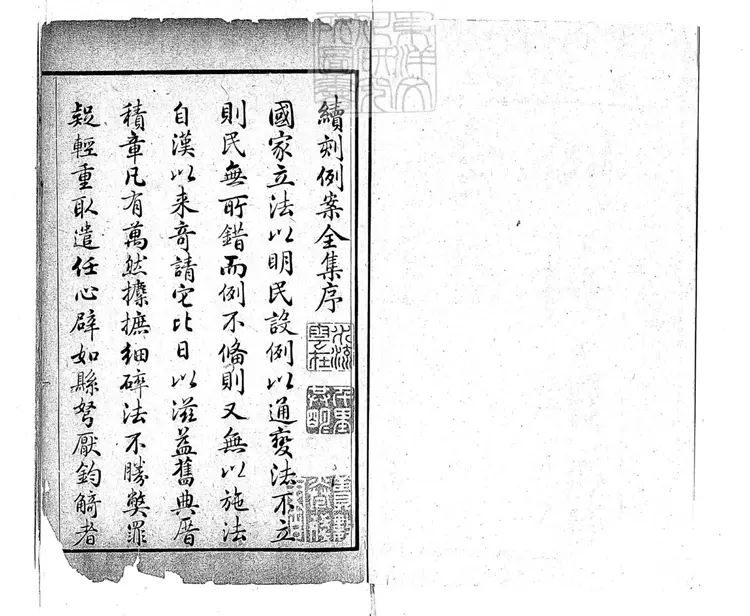 續刻例案全集序
國家立法以明民設例以通變法不立
則民無所錯而例不備則又無以施法
自漢以来奇請它比日以滋益舊典厝
積章凡有萬然摭細碎法不勝獘罪
疑輕重取遣任心辟如縣弩厭鈞觭者
水流雲在